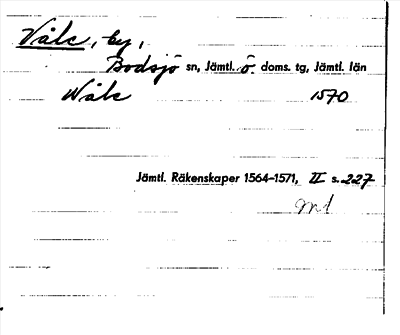 Våle, by,
Bodsjö sn, Jämtl. ö. doms. tg, Jämtl. län
Wåle 1570
Jämtl. Räkenskaper 1564-1571, II s. 227